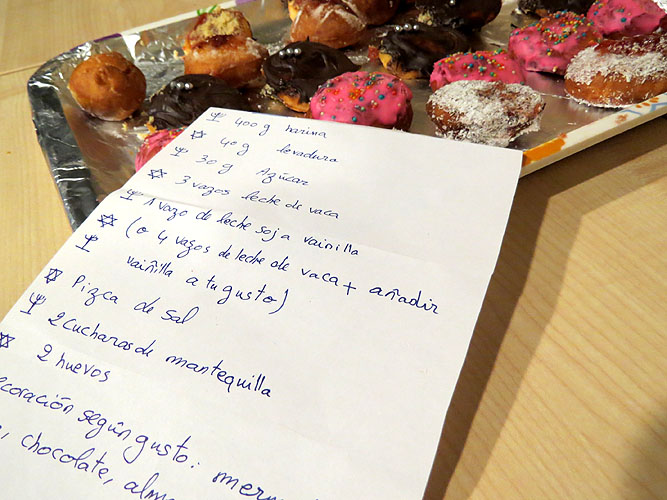 400 g harina
40 g levadura
30 g Azúcar
3 vazos leche de vaca
1 vazo de leche soja vainilla
(o 4 vazos de leche de vaca + añadir
vaiñilla a tu gusto)
Pizca de Sal
2 cucharas de mantequilla
2 huevos
ecoración según gusto: merm
, chocolate, alm